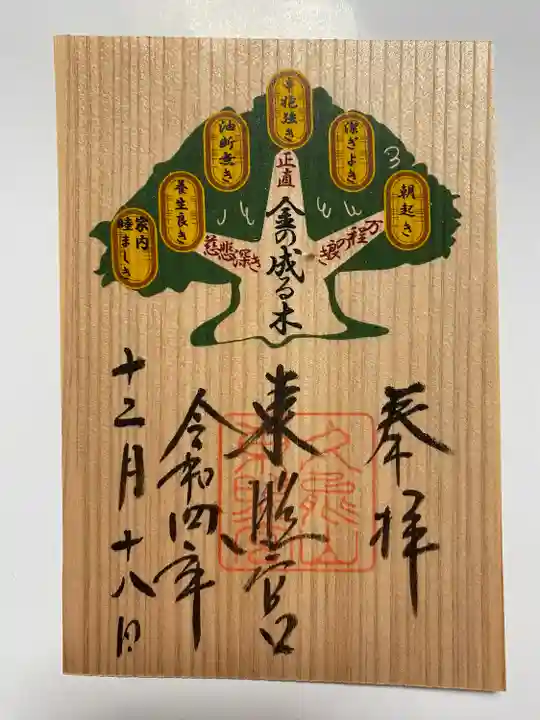 朝起き
潔ぎよき
辛抱強き
油断無き
養生良き
家内
睦ましき
正直
慈悲深き
万程の良き
金の成る木
奉拝
東照宮
令和四年
十二月十八日